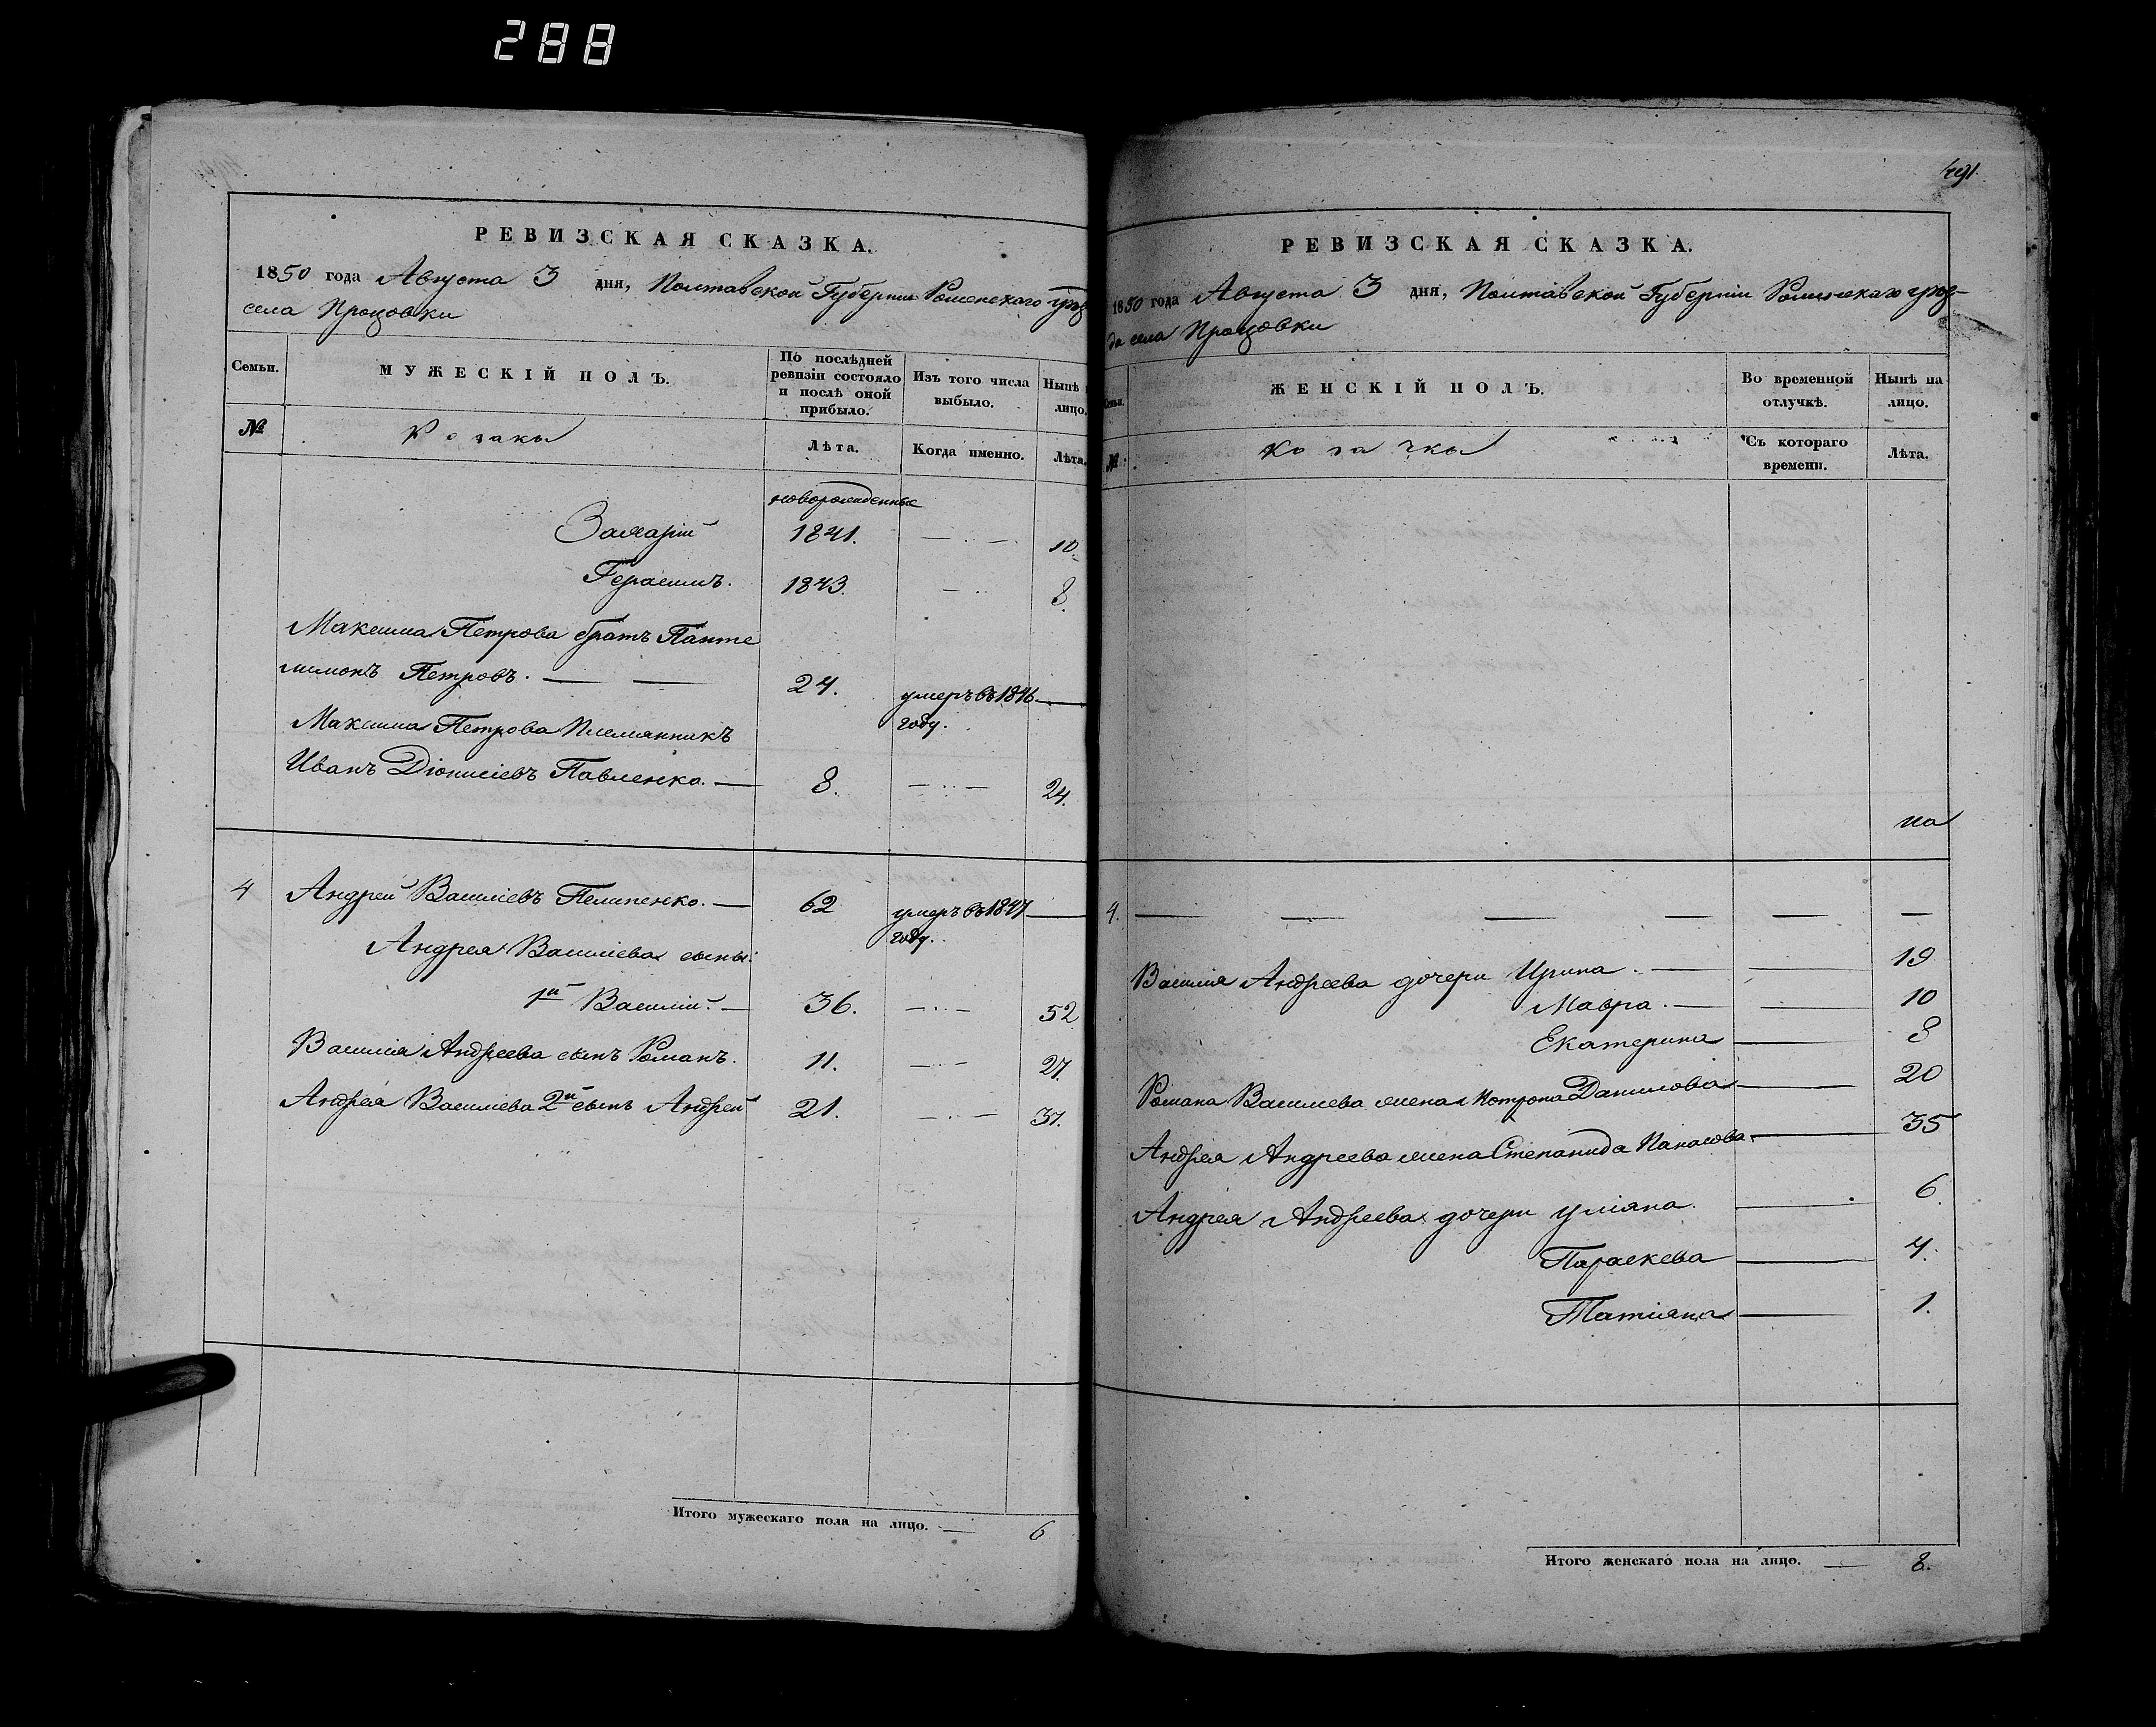 288
РЕВИЗСКАЯ СКАЗКА.
1850 года Августа 3 дня, Полтавской Губернии Роменскаго уѣз
села Процовки
Семьи.
МУЖЕСКІЙ ПОЛЪ.
По послѣдней ревизіи состояло и послѣ оной прибыло.
Изъ того числа выбыло.
Нынѣ
лицо.
№
Козаки
Лѣта.
Когда именно.
Лѣта.
новорожденные
Захарій 1841. — 10.
Герасимъ. 1843. — 8.
Максима Петрова братъ Панте
лимонъ Петровъ. — — 24. умеръ въ 1846 —
году.
Максима Петрова племянникъ
Иванъ Діонисіевъ Павленко. — 8. — 24.
4 Андрей Василіевъ Пелипенко. — 62 умеръ въ 1847 —
году.
Андрея Василіева сыны:
1й Василій. — 36. — 52
Василія Андреева сынъ Романъ. 11. — 27.
Андрея Василіева 2й сынъ Андрей 21. — 37.
Итого мужескаго пола на лицо. — 6
491.
РЕВИЗСКАЯ СКАЗКА.
1850 года Августа 3 дня, Полтавской Губерніи Роменскаго уѣз-
да села Процовки
Семьи.
ЖЕНСКІЙ ПОЛЪ.
Во временной отлучкѣ.
Нынѣ на лицо.
№
Козачки
Съ котораго времени.
Лѣта.
на
4. — — — — — —
Василія Андреева дочери Ирина. — — 19
Мавра. — — 10
Екатерина — 8
Романа Василиева жена Мотрона Данилова — 20
Андрея Андреева жена Степанида Панасова. — 35
Андрея Андреева дочери Уліяна. — 6
Параскева — 4.
Татіяна — 1.
Итого женскаго пола на лицо. — 8.